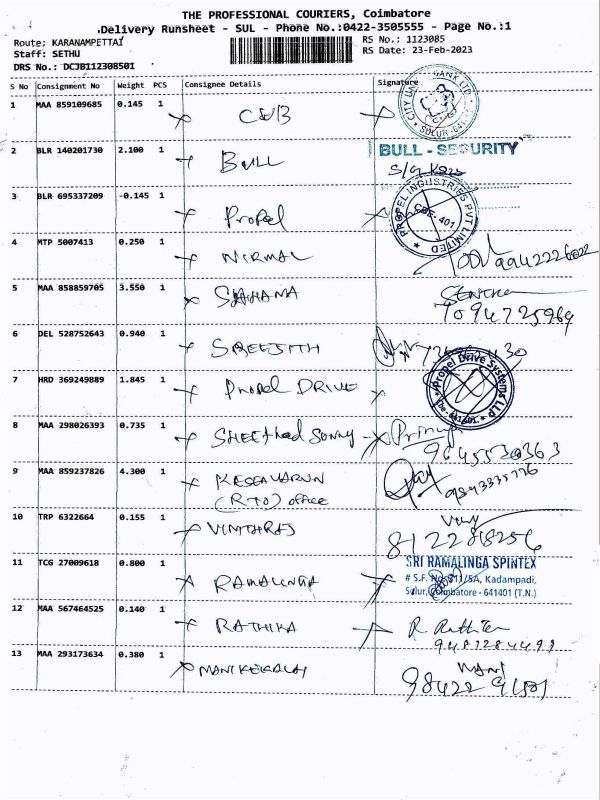 THE PROFESSIONAL COURIERS, Coimbatore
Delivery Runsheet - SUL - Phone No.:0422-3505555 - Page No.:1
Route: KARANAMPETTAI
RS No.: 1123085
Staff: SETHU
RS Date: 23-Feb-2023
DRS No.: DCJB112308501
S No Consignment No Weight PCS Consignee Details Signature
1 MAA 859109685 0.145 1 CUB
CITY UNION BANK LTD. SULUR
2 BLR 140201730 2.100 1 BULL
BULL - SECURITY
3 BLR 695337209 -0.145 1 Propel
PROPEL INDUSTRIES PVT LIMITED CBE. 401
4 MTP 5007413 0.250 1 NIRMAL
5 MAA 858859705 3.550 1 SAHANA
6 DEL 528752643 0.940 1 SREEJITH
7 HRD 369249889 1.845 1 Propel DRIVE
Propel Drive Systems LLP
8 MAA 298026393 0.735 1
9645530363
9 MAA 859237826 4.300 1 KESAVARUN
(RTO) office
9843335776
10 TRP 6322664 0.155 1 VINITHRAJ
8122818256
11 TCG 27009618 0.800 1 RAMALINGA
SRI RAMALINGA SPINTEX
# S.F. No. 311/5A, Kadampadi,
Sulur, Coimbatore - 641401 (T.N.)
12 MAA 567464525 0.140 1 RATHIKA
13 MAA 293173634 0.380 1
Mani